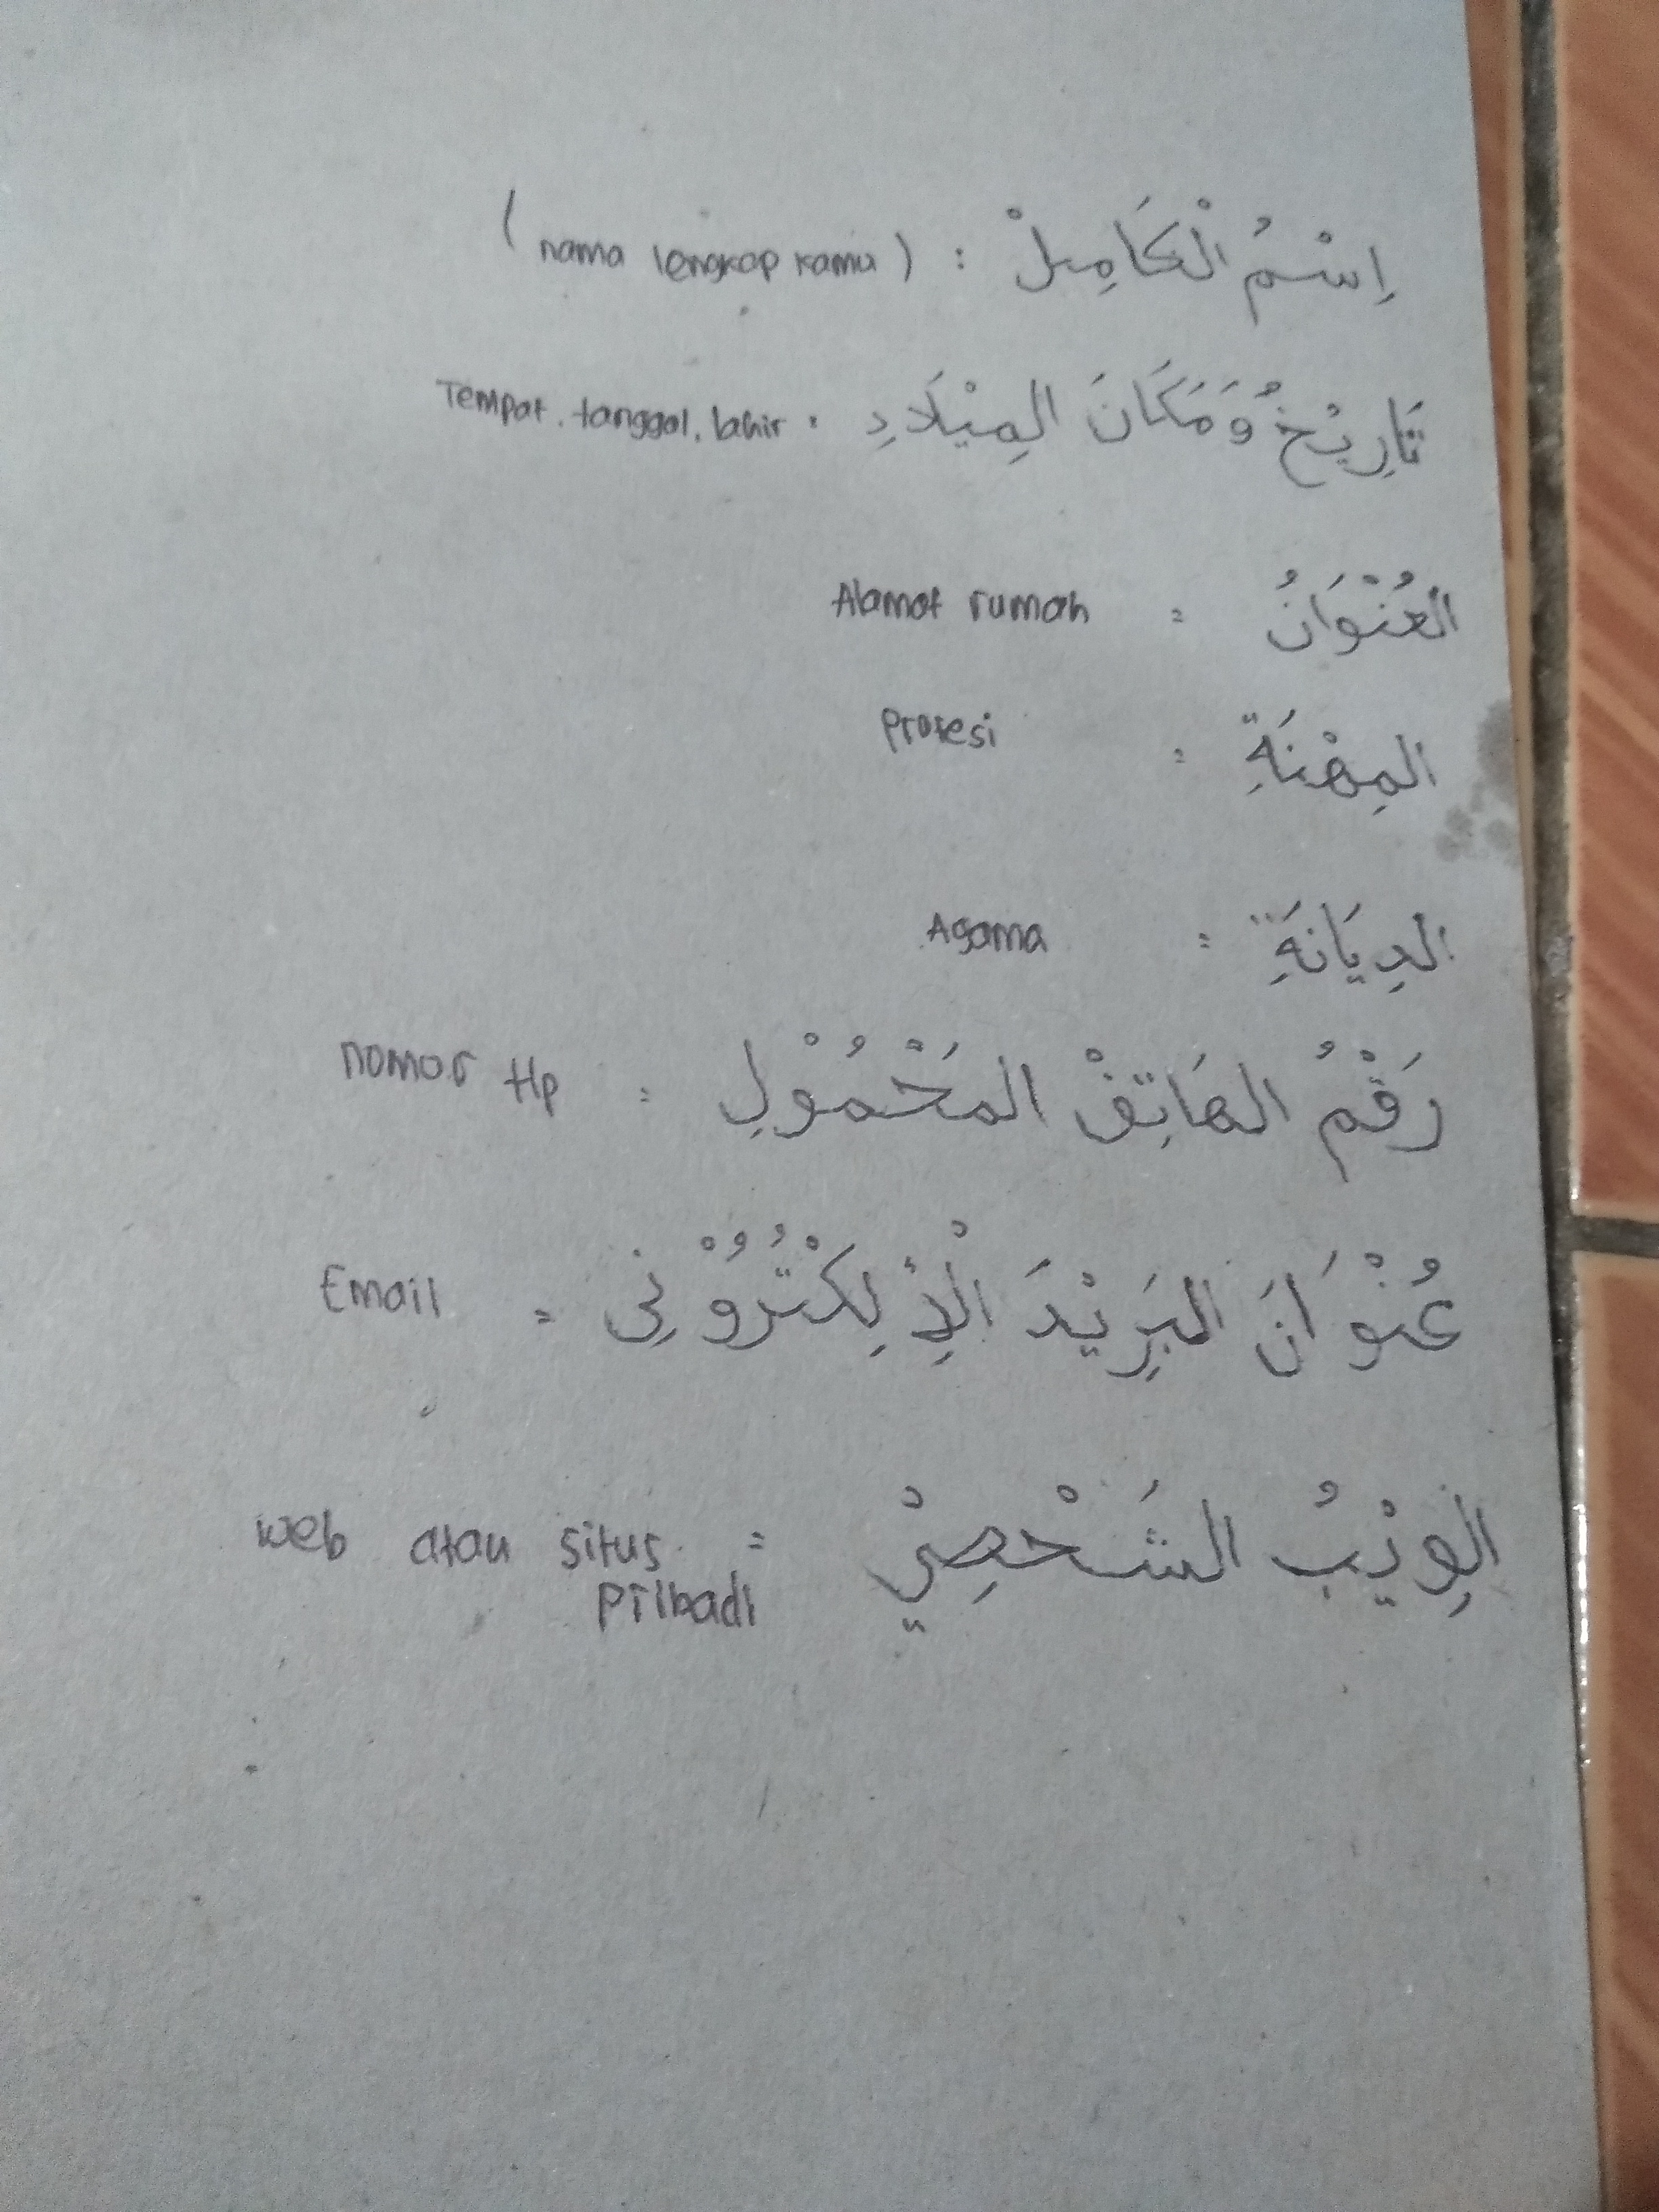 اِسْمُ الْكَامِلْ : (nama lengkap kamu)
تَارِيْخُ وَمَكَانَ المِيْلَادِ : Tempat. tanggal, lahir
العُنْوَانُ : Alamat rumah
المِهْنَةِ : Profesi
الدِيَانَةِ : Agama
رَقْمُ الهَاتِفْ المَحْمُوْلِ : nomor Hp
عُنْوَانَ البَرِيْدَ الْإِلِكْتُرُوْنِى : Email
الوِيْبُ الشَخْصِيْ : web atau situs
Pribadi